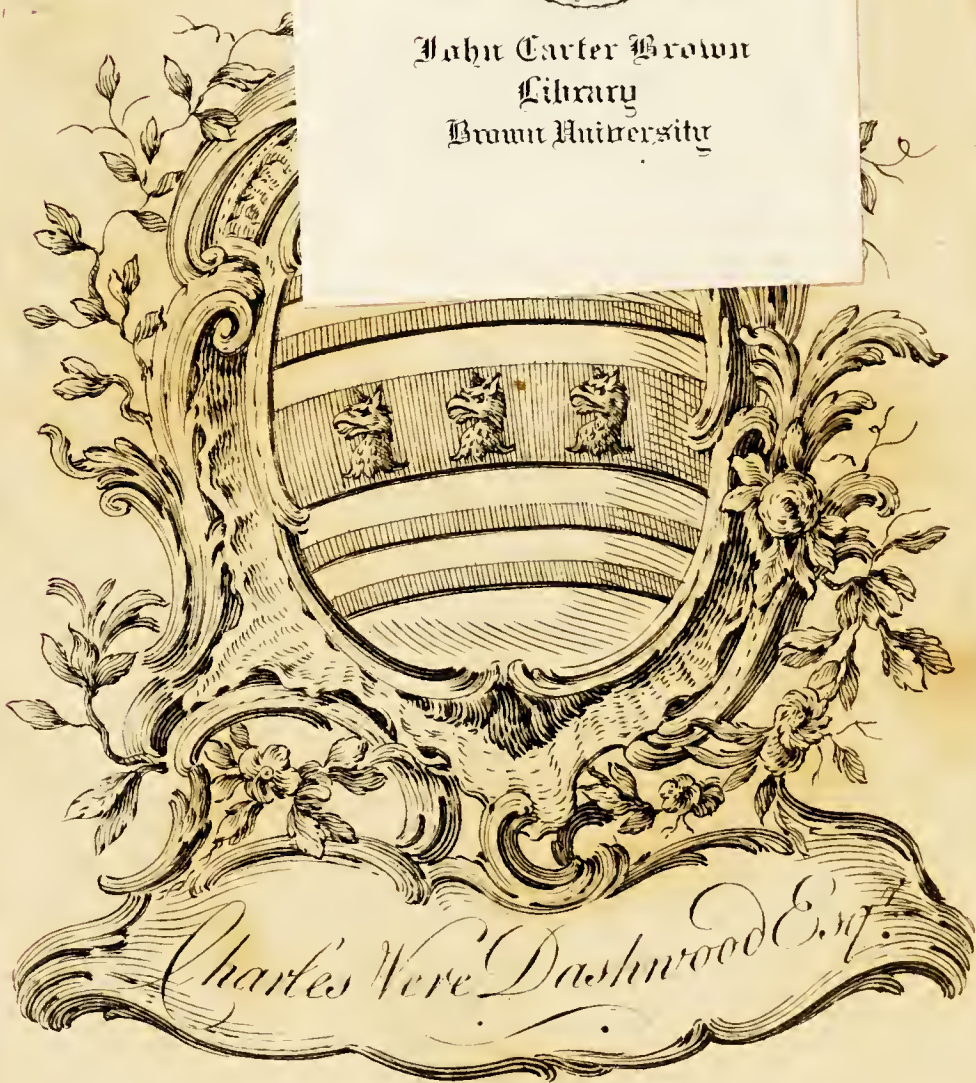 John Carter Brown
Library
Brown University
Charles Vere Dashwood Esqr.